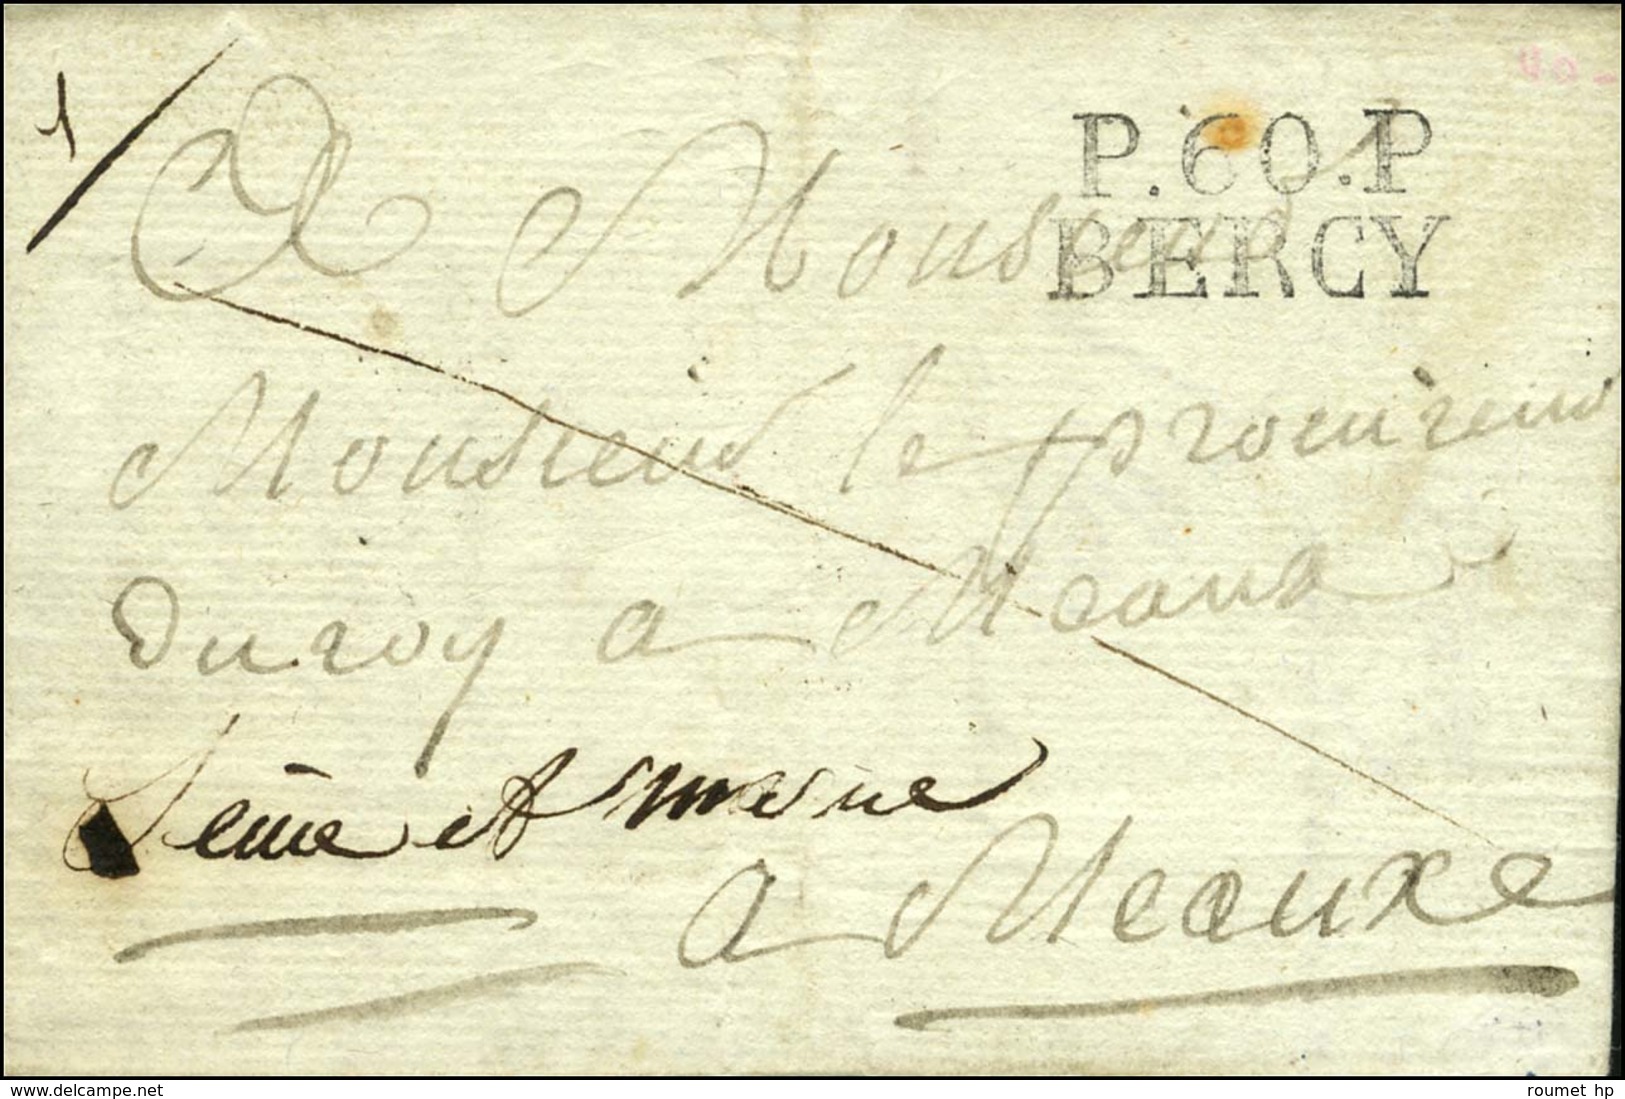 1
P.60.P
BERCY
A Monsieur
Monsieur le procureur
Du roy a Meaux
Seine et marne
a Meaux
www.delcampe.net
roumet hp